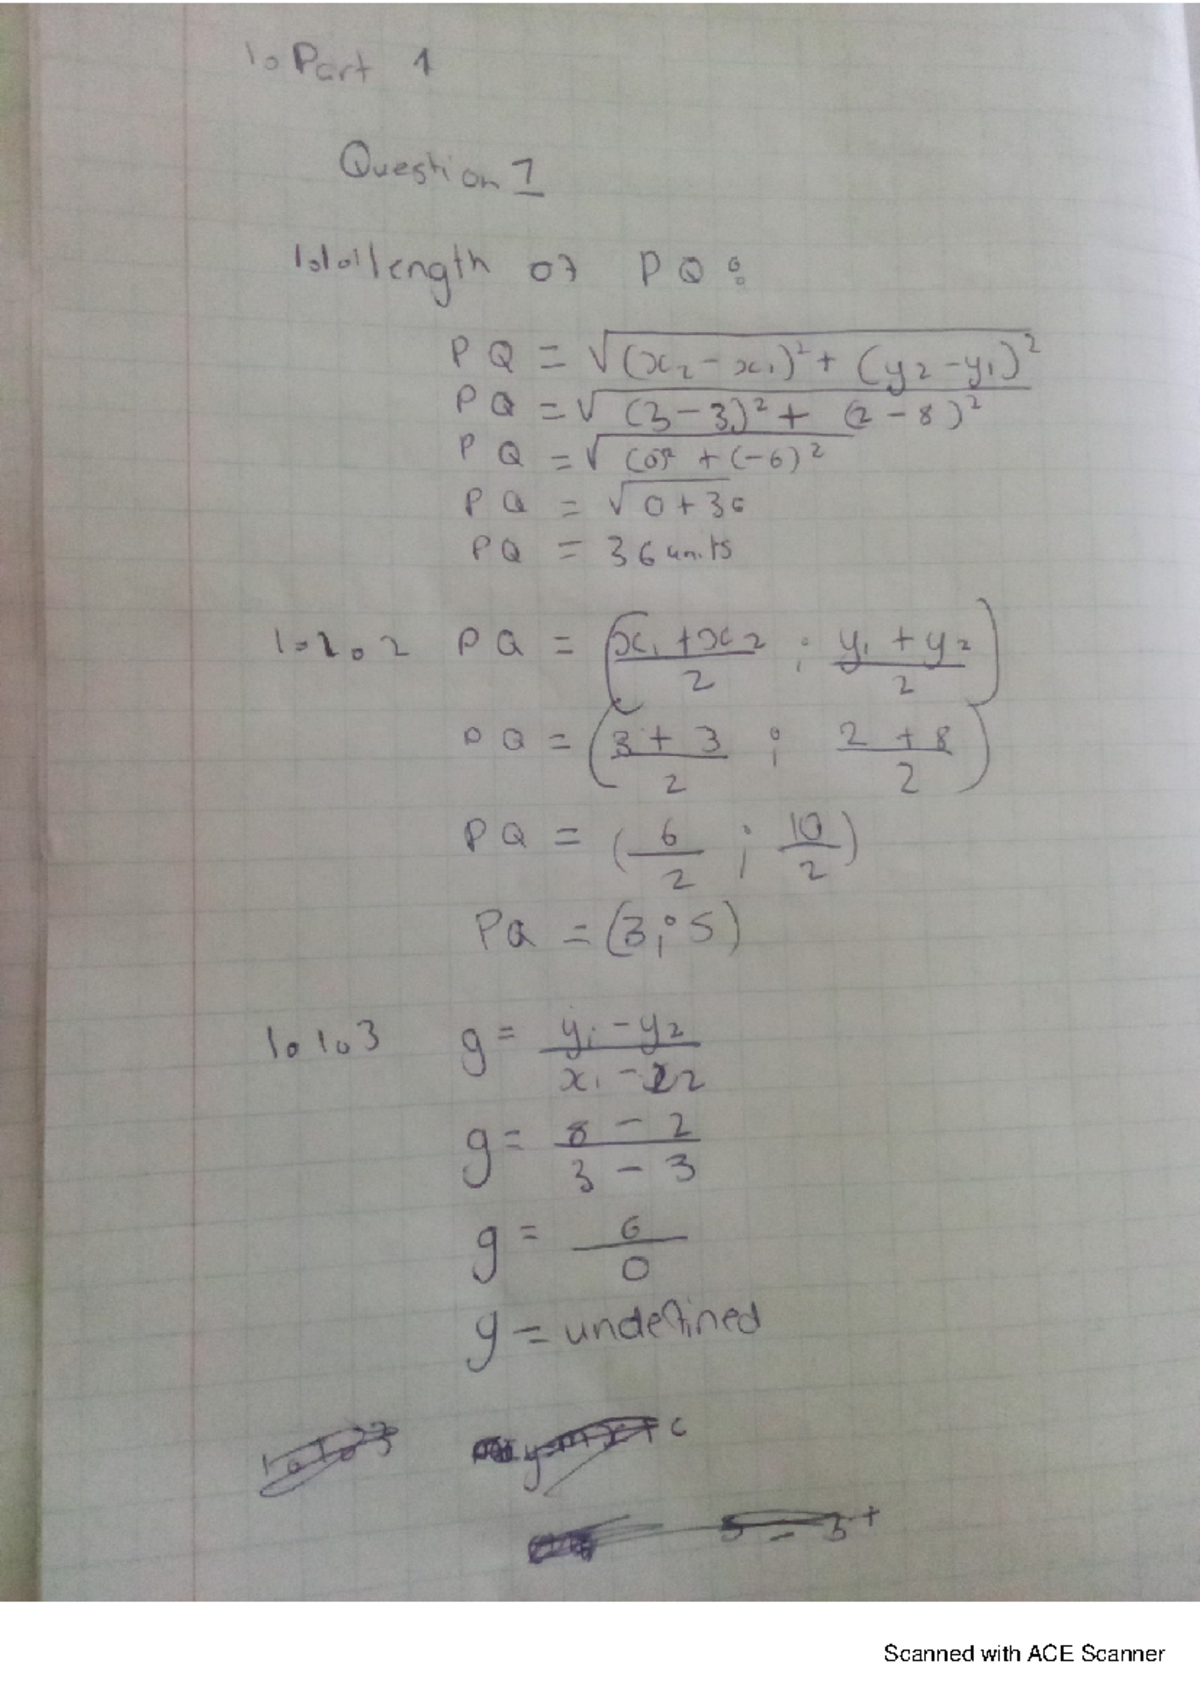 1. Part 1
Question 1
1.1.1 length of PQ:
PQ = √(x₂ - x₁)² + (y₂ - y₁)²
PQ = √(3 - 3)² + (2 - 8)²
PQ = √(0)² + (-6)²
PQ = √0 + 36
PQ = 36 units
1.1.2 PQ = (x₁ + x₂ / 2 ; y₁ + y₂ / 2)
PQ = (3 + 3 / 2 ; 2 + 8 / 2)
PQ = (6 / 2 ; 10 / 2)
PQ = (3 ; 5)
1.1.3 g = y₁ - y₂ / x₁ - x₂
g = 8 - 2 / 3 - 3
g = 6 / 0
g = undefined
Scanned with ACE Scanner